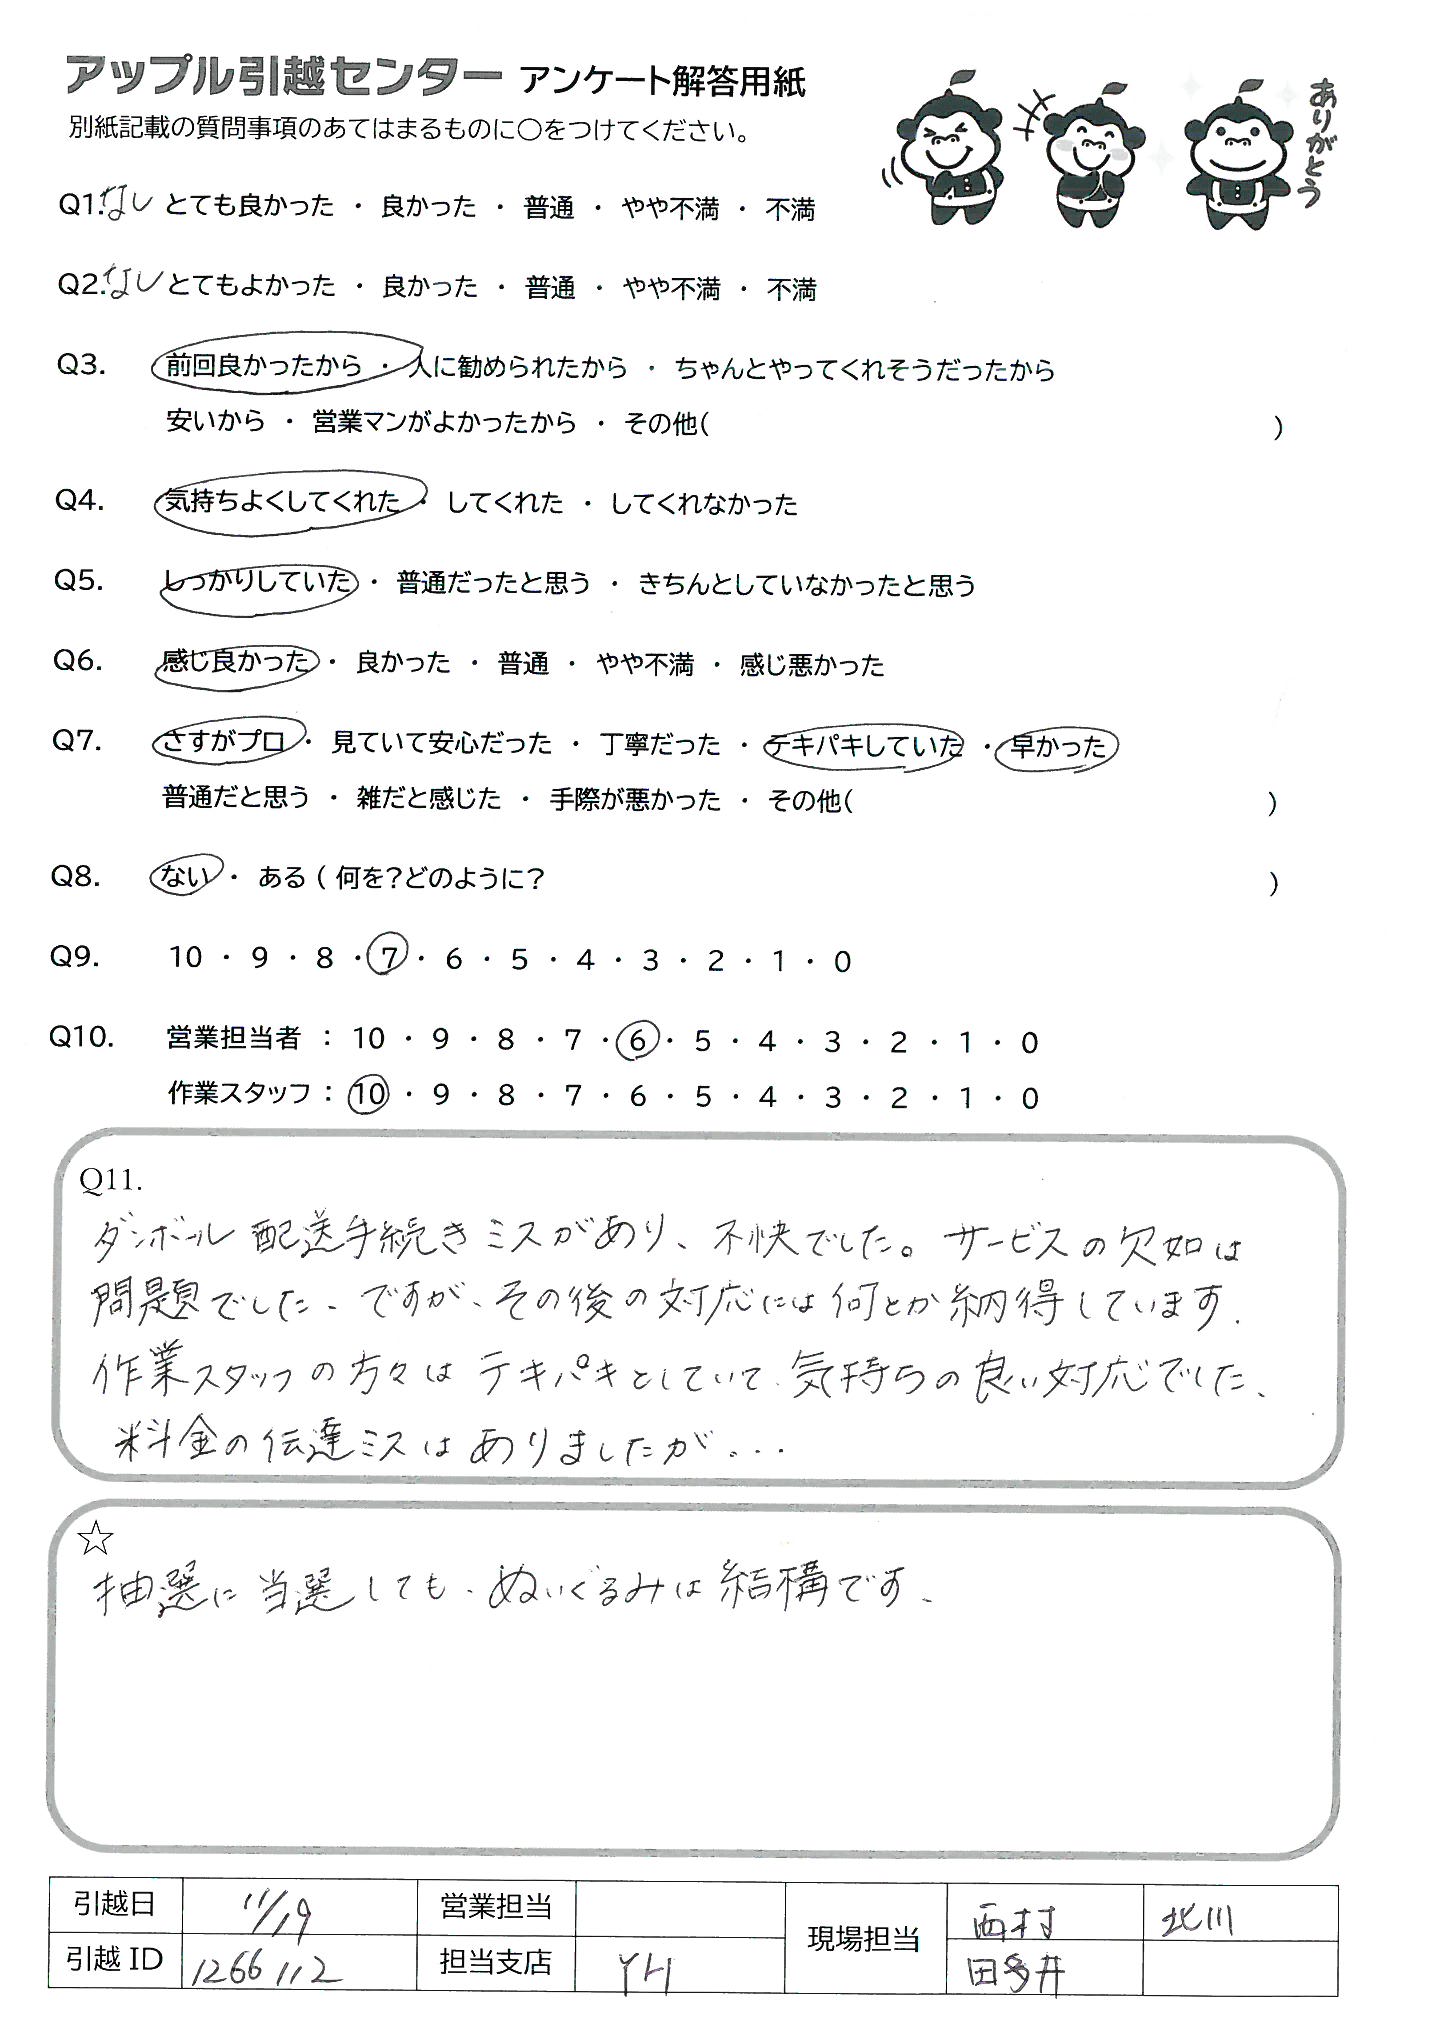 アップル引越センター アンケート解答用紙
別紙記載の質問事項のあてはまるものに〇をつけてください。
ありがとう
Q1. なし とても良かった ・ 良かった ・ 普通 ・ やや不満 ・ 不満
Q2. なし とてもよかった ・ 良かった ・ 普通 ・ やや不満 ・ 不満
Q3. 前回良かったから ・ 人に勧められたから ・ ちゃんとやってくれそうだったから
安いから ・ 営業マンがよかったから ・ その他( )
Q4. 気持ちよくしてくれた ・ してくれた ・ してくれなかった
Q5. しっかりしていた ・ 普通だったと思う ・ きちんとしていなかったと思う
Q6. 感じ良かった ・ 良かった ・ 普通 ・ やや不満 ・ 感じ悪かった
Q7. さすがプロ ・ 見ていて安心だった ・ 丁寧だった ・ テキパキしていた ・ 早かった
普通だと思う ・ 雑だと感じた ・ 手際が悪かった ・ その他( )
Q8. ない ・ ある ( 何を?どのように? )
Q9. 10 ・ 9 ・ 8 ・ 7 ・ 6 ・ 5 ・ 4 ・ 3 ・ 2 ・ 1 ・ 0
Q10. 営業担当者 : 10 ・ 9 ・ 8 ・ 7 ・ 6 ・ 5 ・ 4 ・ 3 ・ 2 ・ 1 ・ 0
作業スタッフ : 10 ・ 9 ・ 8 ・ 7 ・ 6 ・ 5 ・ 4 ・ 3 ・ 2 ・ 1 ・ 0
Q11.
ダンボール配送手続きミスがあり、不快でした。サービスの欠如は
問題でした、ですが、その後の対応には何とか納得しています.
作業スタッフの方々はテキパキとしていて、気持ちの良い対応でした、
料金の伝達ミスはありましたが...
☆
抽選に当選しても、ぬいぐるみは結構です、
引越日 11/19 営業担当 現場担当 西村 北川
引越ID 1266112 担当支店 YH 田多井